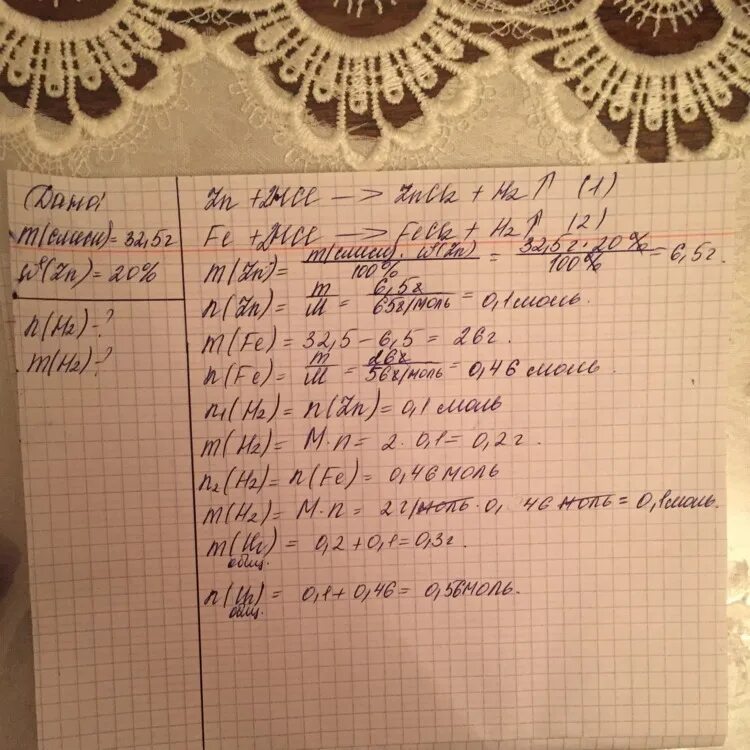 Дано:
m(смеси)=32,5г
w(Zn)=20%
n(H2)-?
m(H2)-?
Zn+2HCl —> ZnCl2 + H2↑ (1)
Fe+2HCl —> FeCl2 + H2↑ (2)
m(Zn)= m(смеси)·w(Zn)/100% = 32,5г·20%/100% = 6,5г.
n(Zn)= m/M = 6,5г/65г/моль = 0,1моль.
m(Fe)=32,5-6,5=26г.
n(Fe)= m/M = 26г/56г/моль = 0,46 моль.
n1(H2)=n(Zn)=0,1моль
m(H2)=M·n=2·0,1=0,2г.
n2(H2)=n(Fe)=0,46моль
m(H2)=M·n=2г/моль·0,46моль=0,1моль.
m(H2)=0,2+0,1=0,3г.
общ.
n(H2)=0,1+0,46=0,56моль.
общ.